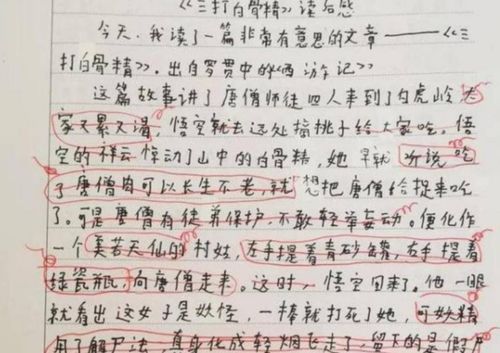 《三打白骨精》读后感
今天,我读了一篇非常有意思的文章——《三
打白骨精》.出自罗贯中的《西游记》
这篇故事讲了唐僧师徒四人来到了白虎岭大
家又累又渴,悟空就去远处摘桃子给大家吃。悟
空的祥云惊动了山中的白骨精,她早就听说吃
了唐僧肉可以长生不老,就想把唐僧给捉来吃
了。可是唐僧有徒弟保护,不敢轻举妄动。便化作
一个美若天仙的村姑,左手提着青砂罐,右手提着
绿瓷瓶,向唐僧走来。这时,悟空回来了。他一眼
就看出这女子是妖怪,一棒就打死了她,可妖精
用了解尸法,真身化成轻烟飞走了,留下的是假尸